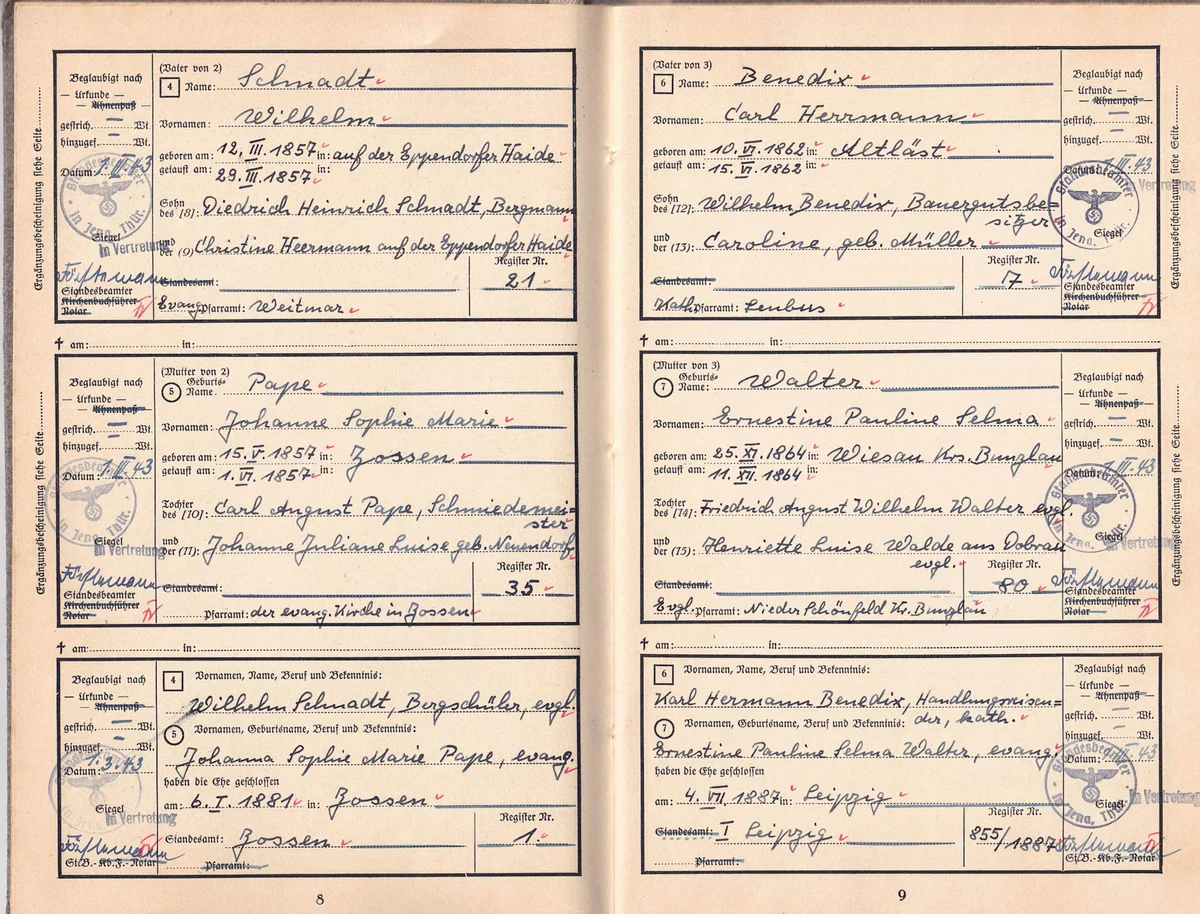 Ergänzungsbescheinigung siehe Seite
Beglaubigt nach
— Urkunde —
— Ahnenpaß —
gestrich. — Wt.
hinzugef. — Wt.
Datum: 1. III. 43
Standesbeamter
in Jena, Thür.
Siegel
In Vertretung
Standesbeamter
Kirchenbuchführer
Notar
(Vater von 2)
4 Name: Schmadt
Vornamen: Wilhelm
geboren am: 12. III. 1857 in: auf der Eppendorfer Haide
getauft am: 29. III. 1857 in:
Sohn des [8]: Diedrich Heinrich Schmadt, Bergmann
und der (9) Christine Heermann auf der Eppendorfer Haide
Register Nr.
Standesamt:
21
Evang. Pfarramt: Weitmar
† am: in:
Ergänzungsbescheinigung siehe Seite
Beglaubigt nach
— Urkunde —
— Ahnenpaß —
gestrich. — Wt.
hinzugef. — Wt.
Datum: 1. III. 43
Standesbeamter
in Jena, Thür.
Siegel
In Vertretung
Standesbeamter
Kirchenbuchführer
Notar
(Mutter von 2)
5 Geburts-Name: Pape
Vornamen: Johanne Sophie Marie
geboren am: 15. V. 1857 in: Zossen
getauft am: 1. VI. 1857 in:
Tochter des [10]: Carl August Pape, Schmiedemei=
ster
und der (11): Johanne Juliane Luise geb. Neuendorf
Register Nr.
Standesamt:
35
Pfarramt: der evang. Kirche in Zossen
† am: in:
Beglaubigt nach
— Urkunde —
— Ahnenpaß —
gestrich. — Wt.
hinzugef. — Wt.
Datum: 1. 3. 43
Siegel
In Vertretung
St.B.-Kb.F.-Notar
4 Vornamen, Name, Beruf und Bekenntnis:
Wilhelm Schmadt, Bergschüler, evgl.
5 Vornamen, Geburtsname, Beruf und Bekenntnis:
Johanna Sophie Marie Pape, evang.
haben die Ehe geschlossen
am: 6. I. 1881 in: Zossen
Register Nr.
Standesamt: Zossen
1.
Pfarramt:
8
(Vater von 3)
6 Name: Benedix
Vornamen: Carl Herrmann
geboren am: 10. VI. 1862 in: Altläst
getauft am: 15. VI. 1862 in:
Sohn des [12]: Wilhelm Benedix, Bauergutsbe=
sitzer
und der (13): Caroline, geb. Müller
Register Nr.
Standesamt:
7
Kath. Pfarramt: Leubus
Beglaubigt nach
— Urkunde —
— Ahnenpaß —
gestrich. — Wt.
hinzugef. — Wt.
Datum: 1. III. 43
Standesbeamter
in Jena, Thür.
Siegel
In Vertretung
Standesbeamter
Kirchenbuchführer
Notar
Ergänzungsbescheinigung siehe Seite
† am: in:
(Mutter von 3)
7 Geburts-Name: Walter
Vornamen: Ernestine Pauline Selma
geboren am: 25. XI. 1864 in: Wiesau Krs. Bunzlau
getauft am: 11. XII. 1864 in:
Tochter des [14]: Friedrich August Wilhelm Walter evgl.
und der (15): Henriette Luise Walde aus Dobrau
evgl.
Register Nr.
Standesamt:
80
Evgl. Pfarramt: Nieder Schönfeld Kr. Bunzlau
Beglaubigt nach
— Urkunde —
— Ahnenpaß —
gestrich. — Wt.
hinzugef. — Wt.
Datum: 1. III. 43
Standesbeamter
in Jena, Thür.
Siegel
In Vertretung
Standesbeamter
Kirchenbuchführer
Notar
Ergänzungsbescheinigung siehe Seite
† am: in:
6 Vornamen, Name, Beruf und Bekenntnis:
Karl Hermann Benedix, Handlungsreisen=
der, kath.
7 Vornamen, Geburtsname, Beruf und Bekenntnis:
Ernestine Pauline Selma Walter, evang.
haben die Ehe geschlossen
am: 4. VII. 1887 in: Leipzig
Register Nr.
Standesamt: I Leipzig
855/1887
Pfarramt:
Beglaubigt nach
— Urkunde —
— Ahnenpaß —
gestrich. — Wt.
hinzugef. — Wt.
Datum: 43
Standesbeamter
in Jena, Thür.
Siegel
In Vertretung
St.B.-Kb.F.-Notar
9